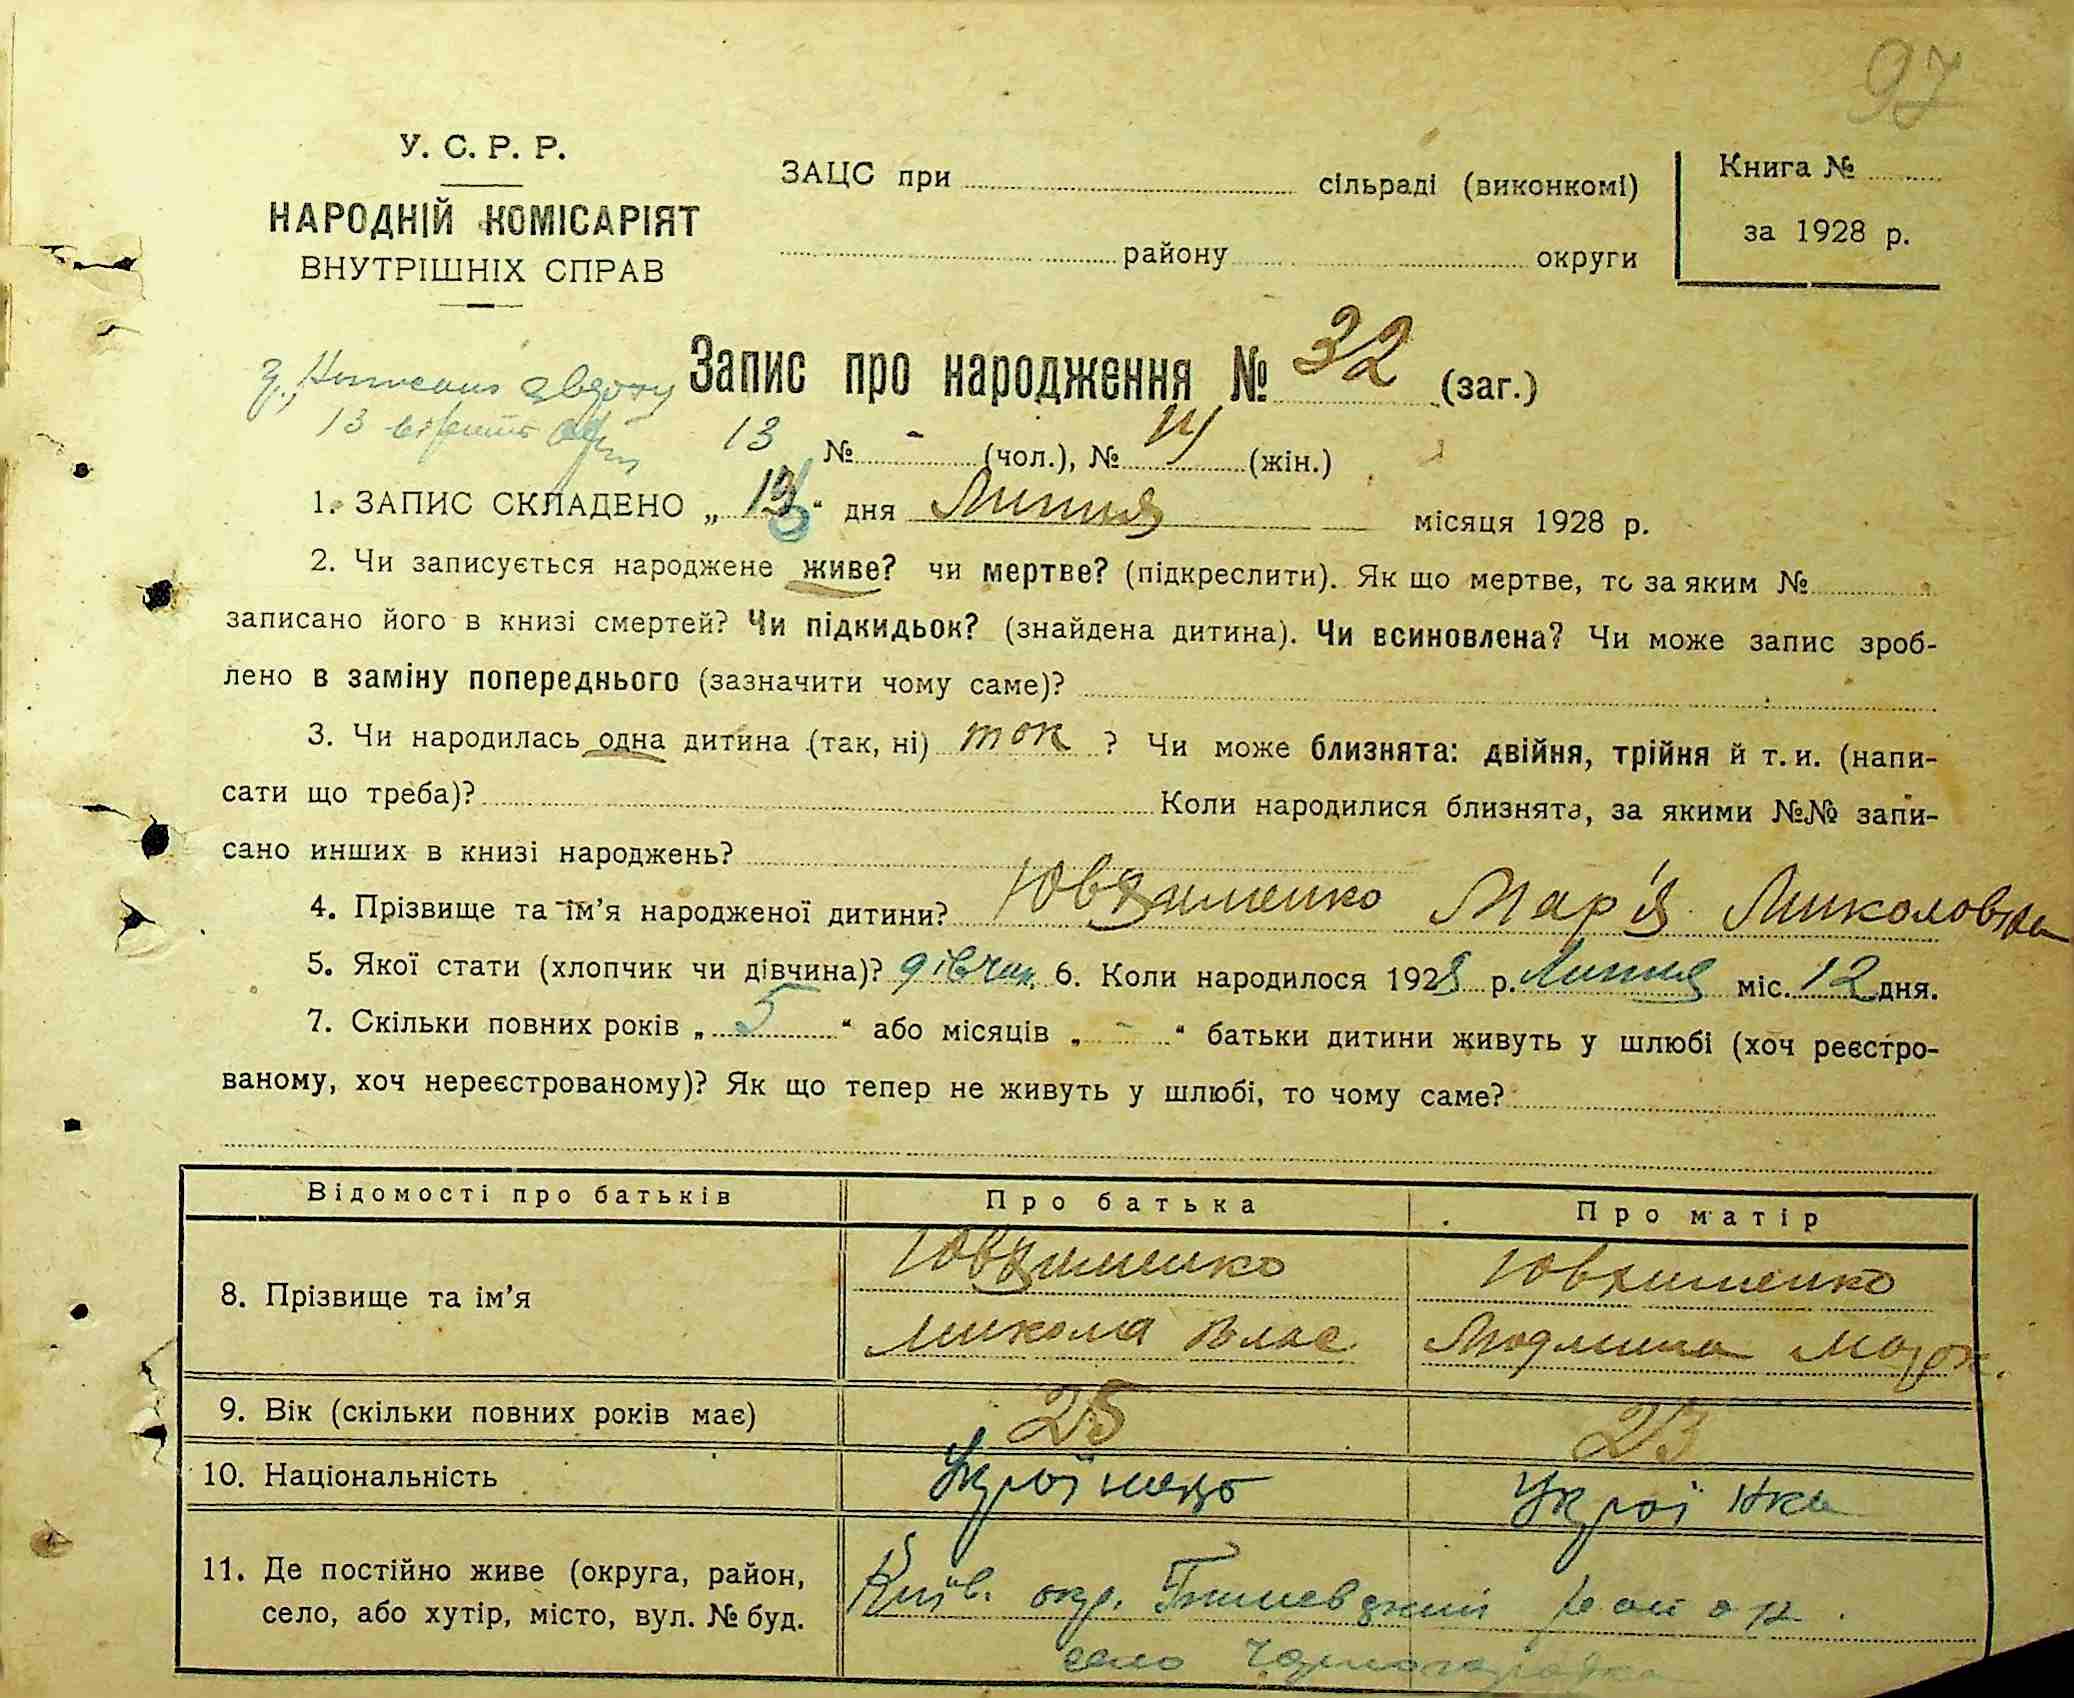 97
У. С. Р. Р.
НАРОДНІЙ КОМІСАРІЯТ
ВНУТРІШНІХ СПРАВ
ЗАЦС при сільраді (виконкомі)
району округи
Книга №
за 1928 р.
Запис про народження № 32 (заг.)
13
13 № - (чол.), № 14 (жін.)
1. ЗАПИС СКЛАДЕНО „ 13 “ дня Липня місяця 1928 р.
2. Чи записується народжене живе? чи мертве? (підкреслити). Як що мертве, то за яким №
записано його в книзі смертей? Чи підкидьок? (знайдена дитина). Чи всиновлена? Чи може запис зроб-
лено в заміну попереднього (зазначити чому саме)?
3. Чи народилась одна дитина (так, ні) так ? Чи може близнята: двійня, трійня й т. и. (напи-
сати що треба)? Коли народилися близнята, за якими №№ запи-
сано инших в книзі народжень?
4. Прізвище та їм’я народженої дитини? Ювхименко Мар'я Миколовна
5. Якої стати (хлопчик чи дівчина)? дівчин. 6. Коли народилося 1928 р. Липня міс. 12 дня.
7. Скільки повних років „ 5 “ або місяців „ - “ батьки дитини живуть у шлюбі (хоч реєстро-
ваному, хоч нереєстрованому)? Як що тепер не живуть у шлюбі, то чому саме?
Відомості про батьків Про батька Про матір
8. Прізвище та ім’я
Ювхименко Ювхименко
Микола Влас Людмила
9. Вік (скільки повних років має) 25 23
10. Національність Українець Українка
11. Де постійно живе (округа, район,
село, або хутір, місто, вул. № буд.
Київ. окр. район.
село Чорногородка